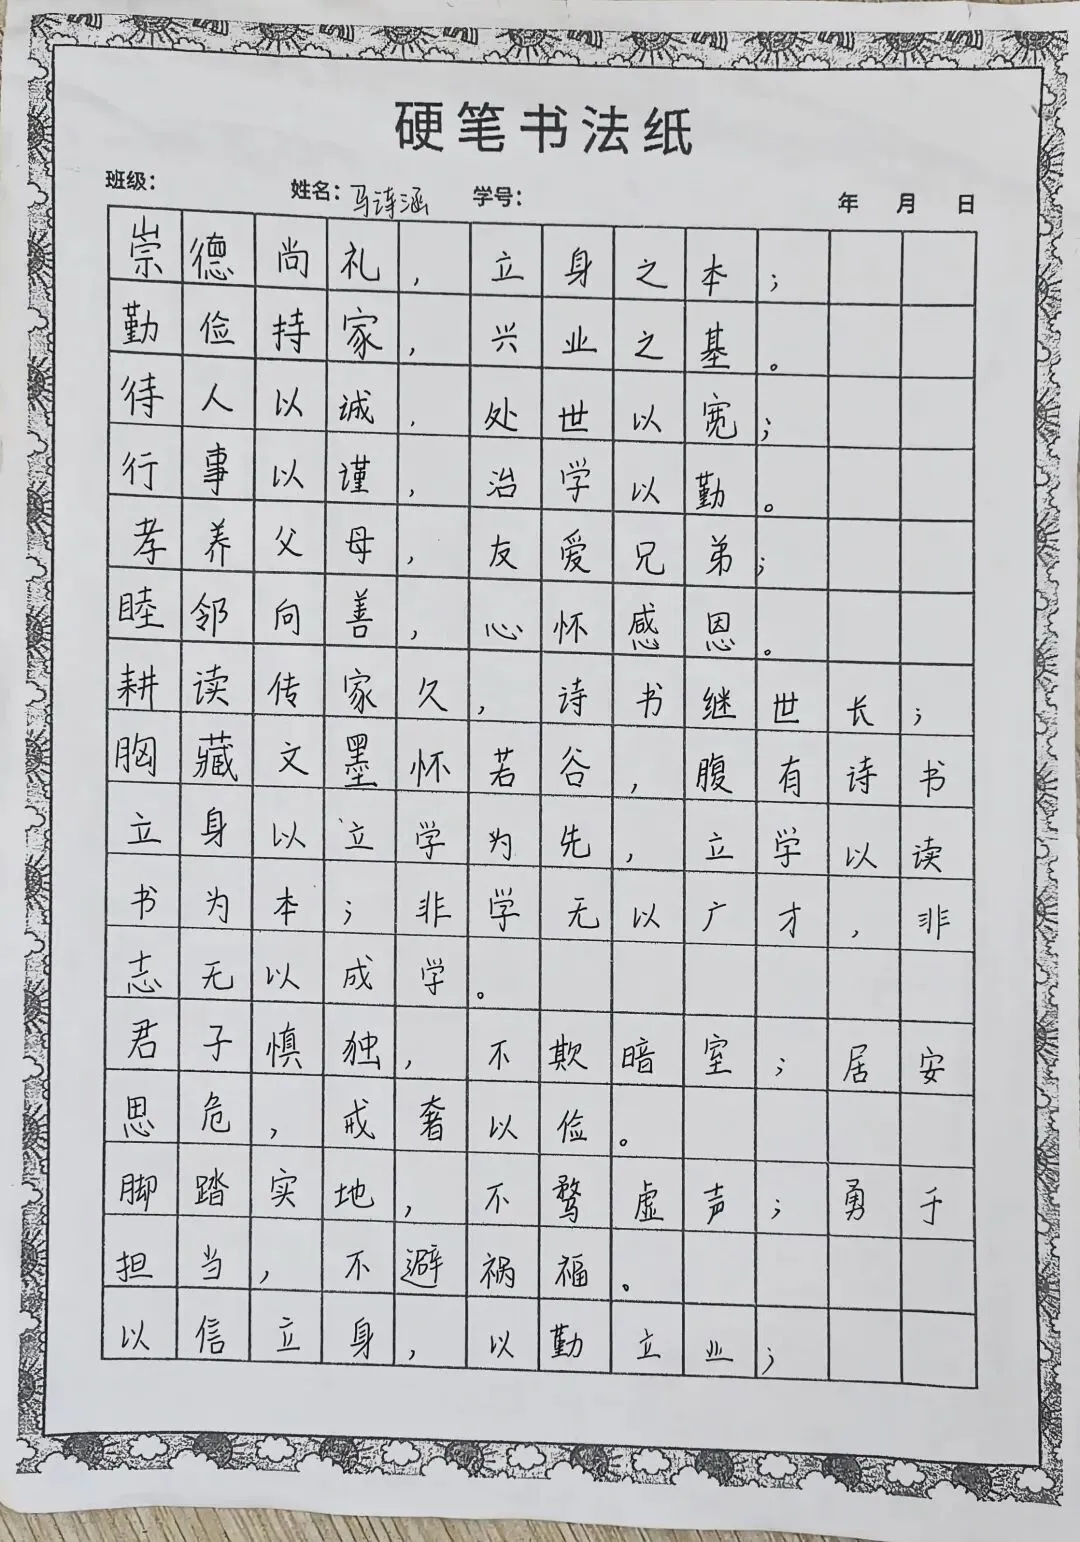 硬笔书法纸
班级： 姓名：马诗涵 学号： 年 月 日
崇德尚礼，立身之本；
勤俭持家，兴业之基。
待人以诚，处世以宽；
行事以谨，治学以勤。
孝养父母，友爱兄弟；
睦邻向善，心怀感恩。
耕读传家久，诗书继世长；
胸藏文墨怀若谷，腹有诗书
立身以立学为先，立学以读
书为本；非学无以广才，非
志无以成学。
君子慎独，不欺暗室；居安
思危，戒奢以俭。
脚踏实地，不鹜虚声；勇于
担当，不避祸福。
以信立身，以勤立业；